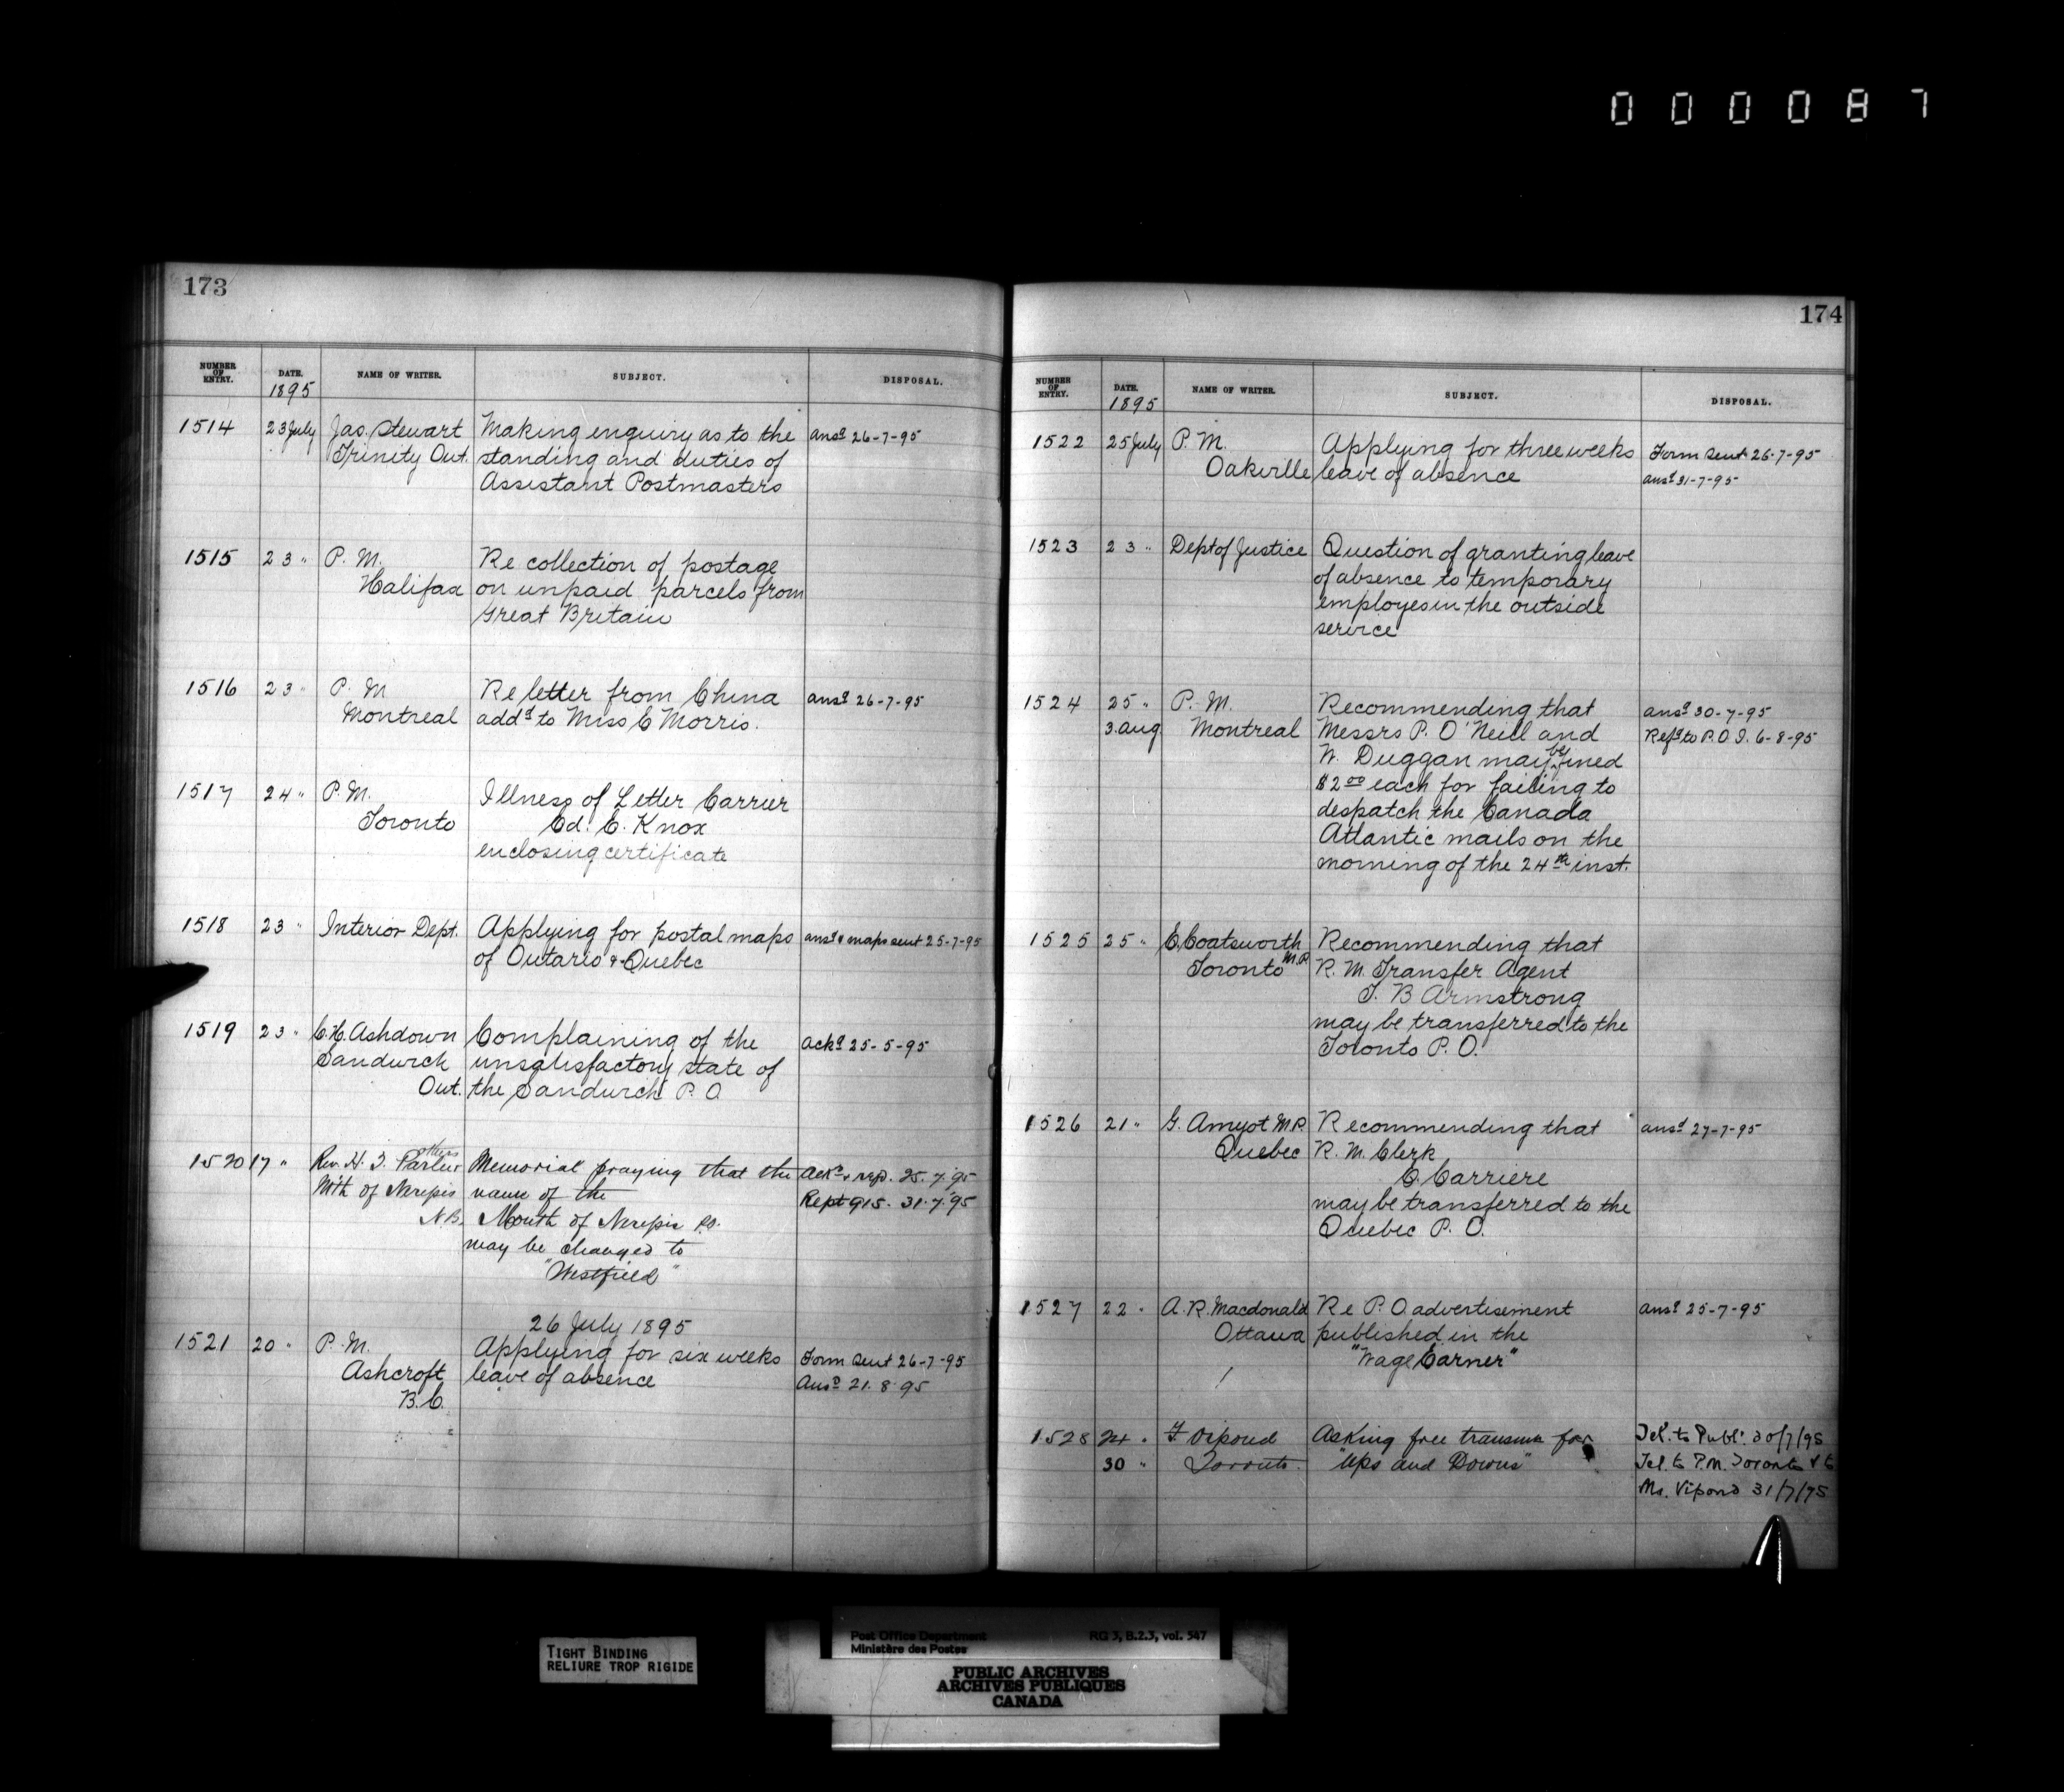 000087
173
NUMBER OF ENTRY. DATE. NAME OF WRITER. SUBJECT. DISPOSAL.
1895
1514 23 July Jas. Stewart Making enquiry as to the ansd 26-7-95
Trinity Ont. standing and duties of
Assistant Postmasters
1515 23 " P. M. Re collection of postage
Halifax on unpaid parcels from
Great Britain
1516 23 " P. M Re letter from China ansd 26-7-95
Montreal addd to Miss C Morris.
1517 24 " P. M. Illness of Letter Carrier
Toronto Ed. C. Knox
enclosing certificate
1518 23 " Interior Dept. Applying for postal maps ansd & maps sent 25-7-95
of Ontario & Quebec
1519 23 " C. H. Ashdown Complaining of the ackd 25-5-95
Sandwich unsatisfactory state of
Ont. the Sandwich P. O
1520 17 " Rev. H. T. Parlee others Memorial praying that the Ackd & rep. 25.7.95
Mth of Nerepis name of the Rept 915. 31.7.95
N.B. Mouth of Nerepis P.O.
may be changed to
"Westfield"
26 July 1895
1521 20 " P. M. Applying for six weeks Form sent 26-7-95
Ashcroft leave of absence Ansd 21.8.95
B.C.
174
NUMBER OF ENTRY. DATE. NAME OF WRITER. SUBJECT. DISPOSAL.
1895
1522 25 July P. M. Applying for three weeks Form sent 26-7-95
Oakville leave of absence ansd 31-7-95
1523 23 " Dept of Justice Question of granting leave
of absence to temporary
employes in the outside
service
1524 25 " P. M. Recommending that ansd 30-7-95
3. aug. Montreal Messrs P. O'Neill and Refd to P.O.I. 6-8-95
W. Duggan may be fined
$2 00 each for failing to
despatch the Canada
Atlantic mails on the
morning of the 24th inst.
1525 25 " E. Coatsworth Recommending that
Toronto M.P. R. M. Transfer Agent
T. B Armstrong
may be transferred to the
Toronto P. O.
1526 21 " G. Amyot M.P. Recommending that ansd 27-7-95
Quebec R. M. Clerk
C. Carriere
may be transferred to the
Quebec P. O.
1527 22 " A. R. Macdonald Re P. O. advertisement ansd 25-7-95
Ottawa published in the
"Wage Earner"
1528 24 " F. Vipond Asking free transmn for Tel. to Publr. 30/7/95
30 " Toronto. "Ups and Downs" Tel. to P.M. Toronto & to
Mr. Vipond 31/7/95
TIGHT BINDING
RELIURE TROP RIGIDE
Post Office Department RG 3, B.2.3, vol. 547
Ministère des Postes
PUBLIC ARCHIVES
ARCHIVES PUBLIQUES
CANADA